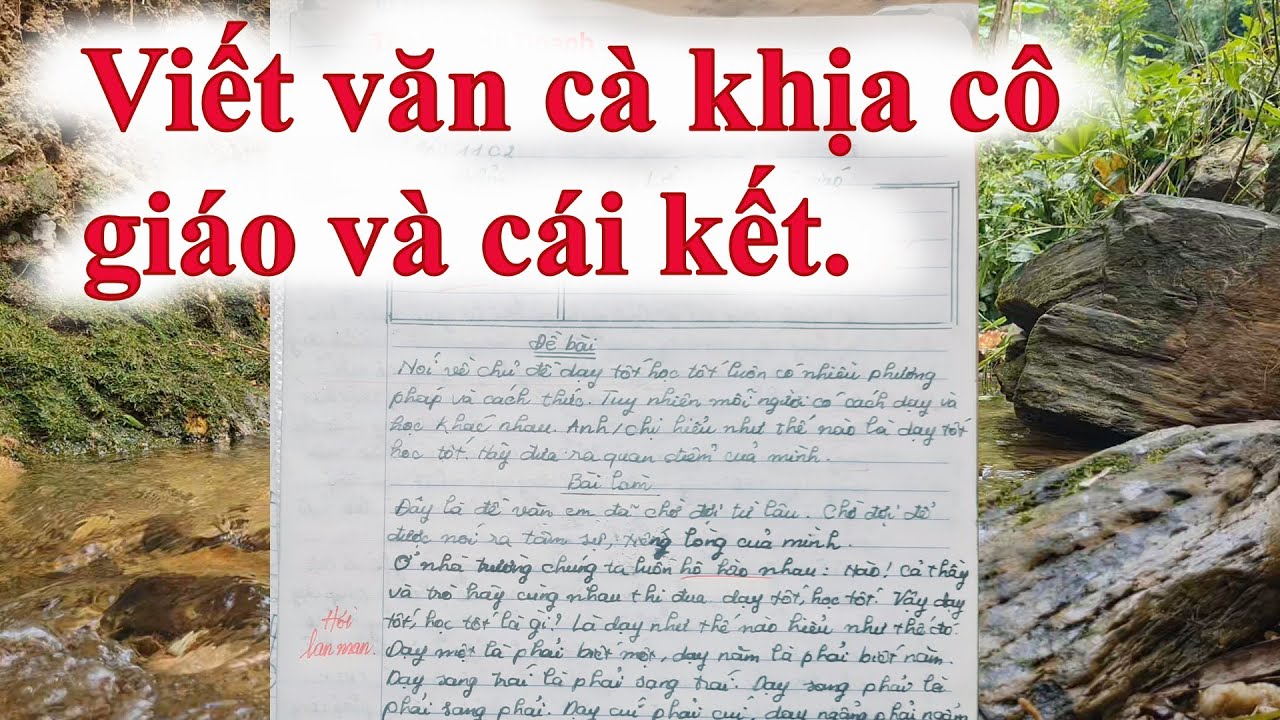 Viết văn cà khịa cô
giáo và cái kết.
11C2
Đề bài
Nói về chủ đề dạy tốt học tốt luôn có nhiều phương
pháp và cách thức. Tuy nhiên mỗi người có cách dạy và
học khác nhau. Anh/chị hiểu như thế nào là dạy tốt
học tốt. Hãy đưa ra quan điểm của mình.
Bài làm
Đây là đề văn em đã chờ đợi từ lâu. Chờ đợi để
được nói ra tâm sự, trong lòng của mình.
Ở nhà trường chúng ta luôn hô hào nhau: Nào! Cả thầy
và trò hãy cùng nhau thi đua dạy tốt, học tốt. Vậy dạy
tốt, học tốt là gì? Là dạy như thế nào hiểu như thế đó.
Hơi
lan man.
Dạy một là phải biết một, dạy năm là phải biết năm.
Dạy sang trái là phải sang trái. Dạy sang phải là
phải sang phải. Dạy cúi phải cúi, dạy ngẩng phải ngẩng